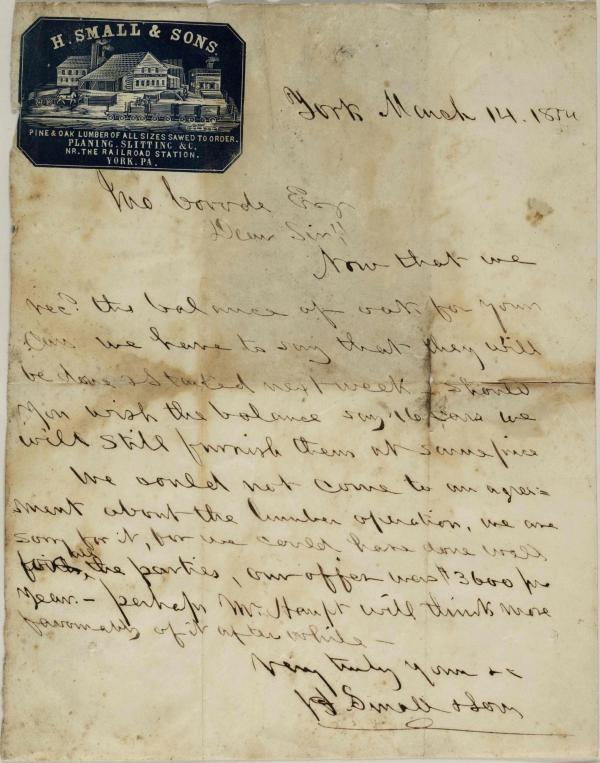 H. SMALL & SONS.
PINE & OAK LUMBER OF ALL SIZES SAWED TO ORDER.
PLANING, SLITTING &C.
NR. THE RAILROAD STATION.
YORK. PA.
York March 14. 1854
Jno Covode Esq
Dear Sir!!
Now that we
recd the balance of oak for your
Cars we have to say that they will
be done & Started next week, should
You wish the balance say 16 Cars we
will Still furnish them at same price
We could not come to an agree=
ment about the lumber operation, we are
sorry for it, for we could have done well
the parties, our offer was $3600 pr
Year. — perhaps Mr. Haupt will think more
favorably of it after while —
Very truly yours &c
H Small & Sons